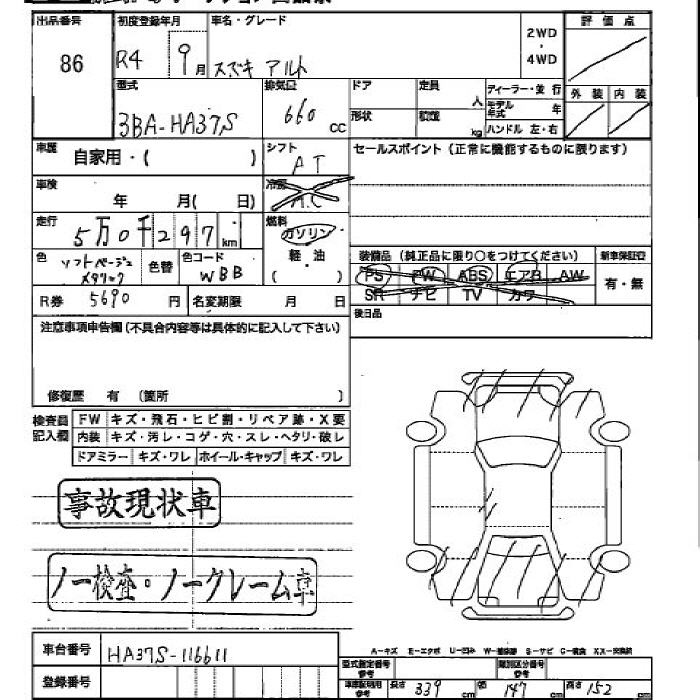 出品番号 初度登録年月 車名・グレード 2WD・4WD 評価点
86 R4 9月 スズキ アルト
型式 排気量 ドア 定員 人 ディーラー・並行 外装 内装
3BA-HA37S 660 CC 形状 積載 kg モデル年式 年
ハンドル 左・右
車歴 自家用・( ) シフト AT セールスポイント(正常に機能するものに限ります)
車検 年 月( 日) 冷房 AC
走行 5万0千297km 燃料 ガソリン 軽・油 ( )
色 ソフトベージュメタリック 色替 色コード WBB 装備品(純正品に限り○をつけてください) 新車保証書
PS PW ABS エアB AW 有・無
SR ナビ TV カワ
R券 5690円 名変期限 月 日 後日品
注意事項申告欄(不具合内容等は具体的に記入して下さい)
修復歴 有 (箇所 )
検査員記入欄 FW キズ・飛石・ヒビ割・リペア跡・X要
内装 キズ・汚レ・コゲ・穴・スレ・ヘタリ・破レ
ドアミラー キズ・ワレ ホイール・キャップ キズ・ワレ
事故現状車
ノー検査・ノークレーム車
車台番号 HA37S-116611
A-キズ E-エクボ U-凹み W-補修跡 S-サビ C-腐食 XX-交換済
登録番号 型式指定番号参考 類別区分番号参考
車車証記載用参考 長さ 339cm 幅 147cm 高さ 152cm